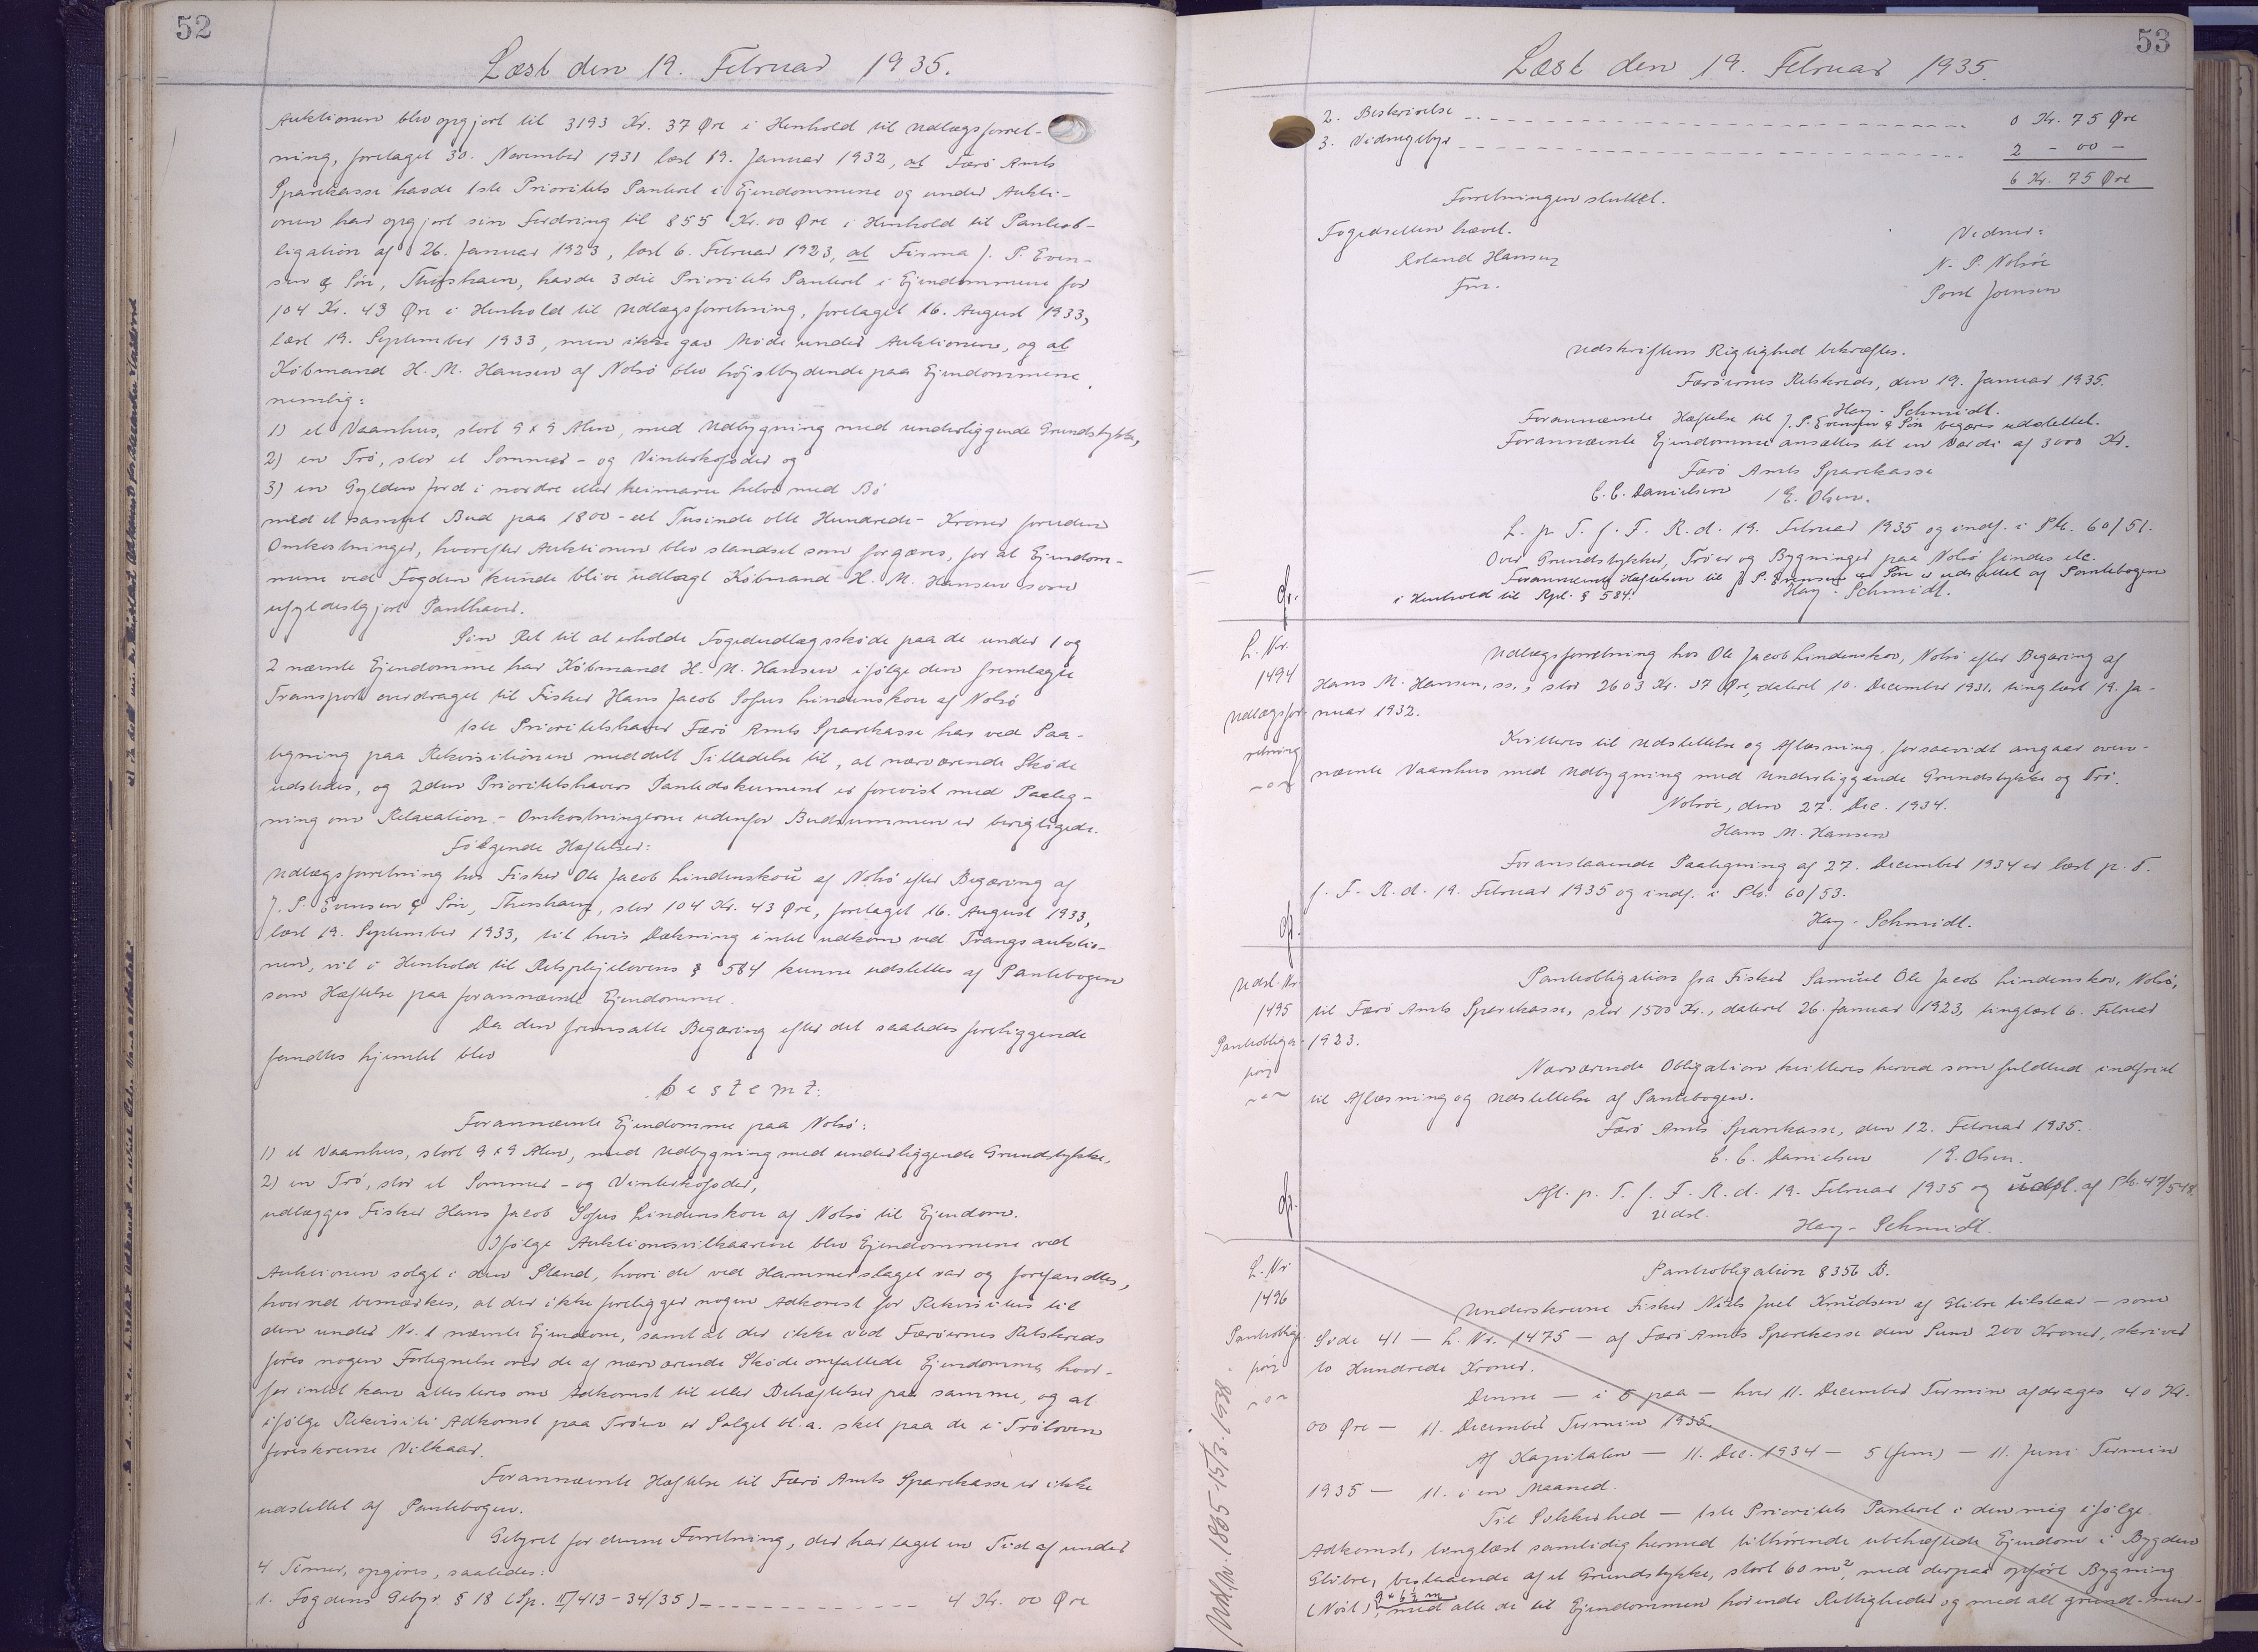 52
Læst den 19. Februar 1935.
Auktionen blev opgjort til 3193 Kr. 37 Øre i Henhold til Udlægsforret-
ning, foretaget 30. November 1931 læst 19. Januar 1932, at Færø Amts
Sparekasse havde 1ste Prioritets Panteret i Ejendommene og under Aukti-
onen har opgjort sin Fordring til 855 Kr. 00 Øre i Henhold til Pantob-
ligation af 26. Januar 1923, læst 6. Februar 1923, at Firma J. P. Even-
sen & Søn, Thorshavn, havde 3die Prioritets Panteret i Ejendommene for
104 Kr. 43 Øre i Henhold til Udlægsforretning, foretaget 16. August 1933,
læst 19. September 1933, men ikke gav Møde under Auktionen, og at
Købmand H. M. Hansen af Nolsø blev højstbydende paa Ejendommene,
nemlig:
1) et Vaanhus, stort 9 x 9 Alen, med Udbygning med underliggende Grundstykke,
2) en Trø, stor et Sommer- og Vinterkofoder og
3) en Gylden Jord i nordre eller heimaru helvt med Bø
med et samlet Bud paa 1800 - eet Tusinde otte Hundrede - Kroner foruden
Omkostninger, hvorefter Auktionen blev standset som forgæves, for at Ejendom-
mene ved Fogden kunde blive udlagt Købmand H. M. Hansen som
ufyldestgjort Panthaver.
Sin Ret til at erholde Fogedudlægsskøde paa de under 1 og
2 nævnte Ejendomme har Købmand H. M. Hansen ifølge den fremlagte
Transport overdraget til Fisker Hans Jacob Sofus Lindenskov af Nolsø
1ste Prioritetshaver Færø Amts Sparekasse har ved Paa-
tegning paa Rekvisitionen meddelt Tilladelse til, at nærværende Skøde
udstedes, og 2den Prioritetshavers Pantedokument er forevist med Paateg-
ning om Relaxation. - Omkostningerne udenfor Budsummen er berigtigede.
Følgende Hæftelser:
Udlægsforretning hos Fisker Ole Jacob Lindenskov af Nolsø efter Begæring af
J. P. Evensen & Søn, Thorshavn, stor 104 Kr. 43 Øre, foretaget 16. August 1933,
læst 19. September 1933, til hvis Dækning intet udkom ved Tvangsauktio-
nen, vil i Henhold til Retsplejelovens § 584 kunne udslettes af Pantebogen
som Hæftelse paa forannævnte Ejendomme.
Da den fremsatte Begæring efter det saaledes foreliggende
fandtes hjemlet blev
bestemt:
Forannævnte Ejendomme paa Nolsø:
1) et Vaanhus, stort 9 x 9 Alen, med Udbygning med underliggende Grundstykke,
2) en Trø, stor et Sommer- og Vinterkofoder,
udlægges Fisker Hans Jacob Sofus Lindenskov af Nolsø til Ejendom.
Ifølge Auktionsvilkaarene blev Ejendommene ved
Auktionen solgt i den Stand, hvori de ved Hammerslaget var og forefandtes,
hvorved bemærkes, at der ikke foreligger nogen Adkomst for Rekvisitus til
den under Nr. 1 nævnte Ejendom, samt at der ikke ved Færøernes Retskreds
føres nogen Fortegnelse over de af nærværende Skøde omfattede Ejendomme, hvor-
for intet kan attesteres om Adkomst til eller Behæftelser paa samme, og at
ifølge Rekvisiti Adkomst paa Trøen er Salget bl. a. sket paa de i Trøloven
foreskrevne Vilkaar.
Forannævnte Hæftelse til Færø Amts Sparekasse er ikke
udslettet af Pantebogen.
Gebyret for denne Forretning, der har taget en Tid af under
4 Timer, opgøres, saaledes:
1. Fogdens Gebyr § 18 (Sp. II/413-34/35) 4 Kr. 00 Øre
53
Læst den 19. Februar 1935.
2. Beskrivelse 0 Kr. 75 Øre
3. Vidnegebyr 2 - 00 -
6 Kr. 75 Øre
Forretningen sluttet.
Fogedretten hævet.
Vidner:
Roland Hansen
N. P. Nolsøe
Fm.
Poul Joensen
Udskriftens Rigtighed bekræftes.
Færøernes Retskreds, den 19. Januar 1935.
Hey-Schmidt.
Forannævnte Hæftelse til J. P. Evensen & Søn begæres udslettet.
Forannævnte Ejendomme ansættes til en Værdi af 3000 Kr.
Færø Amts Sparekasse
C. C. Danielsen / E. Olsen.
L. p. T. f. F. R. d. 19. Februar 1935 og indf. i Ptb. 60/51.
Over Grundstykker, Trøer og Bygninger paa Nolsø findes etc.
Forannævnte Hæftelsen til J. P. Evensen & Søn er udslettet af Pantebogen
i Henhold til Rpl. § 584.
Hey-Schmidt.
L. Nr.
1494
Udlægsfor-
retning
Udlægsforretning hos Ole Jacob Lindenskov, Nolsø efter Begæring af
Hans M. Hansen, ss., stor 2603 Kr. 37 Øre, dateret 10. December 1931, tinglæst 19. Ja-
nuar 1932.
Kvitteres til Udslettelse og Aflæsning, forsaavidt angaar oven-
nævnte Vaanhus med Udbygning med Underliggende Grundstykke og Trø.
Nolsøe, den 27. Dec. 1934.
Hans M. Hansen
Foranstaaende Paategning af 27. December 1934 er læst p. T.
f. F. R. d. 19. Februar 1935 og indf. i Ptb. 60/53.
Hey-Schmidt.
Udsl. Nr.
1495
Pantobliga-
tion
Pantobligation fra Fisker Samúel Ole Jacob Lindenskov, Nolsø,
til Færø Amts Sparekasse, stor 1500 Kr., dateret 26. Januar 1923, tinglæst 6. Februar
1923.
Nærværende Obligation kvitteres herved som fuldtud indfriet
til Aflæsning og Udslettelse af Pantebogen.
Færø Amts Sparekasse, den 12. Februar 1935.
C. C. Danielsen / E. Olsen.
Afl. p. T. f. F. R. d. 19. Februar 1935 og udsl. af Ptb. 47/548.
Udsl.
Hey-Schmidt.
L. Nr.
1496
Pantobliga-
tion
Udsl. Nr. 1865-15/3.1938.
Pantobligation 8356 B.
Underskrevne Fisker Niels Juel Knudsen af Glibre tilstaar - som
Side 41 - L. Nr. 1475 - af Færø Amts Sparekasse den Sum 200 Kroner, skriver
to Hundrede Kroner.
Denne - i 5 paa - hver 11. December Termin afdrages 40 Kr.
00 Øre - 11. December Termin 1935.
Af Kapitalen - 11. Dec. 1934 - 5 (fem) - 11. Juni Termin
1935 - 11. i en Maaned.
Til Sikkerhed - 1ste Prioritets Panteret i den mig ifølge
Adkomst, tinglæst samtidig hermed tilhørende ubehæftede Ejendom i Bygden
Glibre, bestaaende af et Grundstykke, stort 60 m², med derpaa opført Bygning
9 x 6½ m
(Nóst), med alle de til Ejendommen hørende Rettigheder og med alt grund-mur-